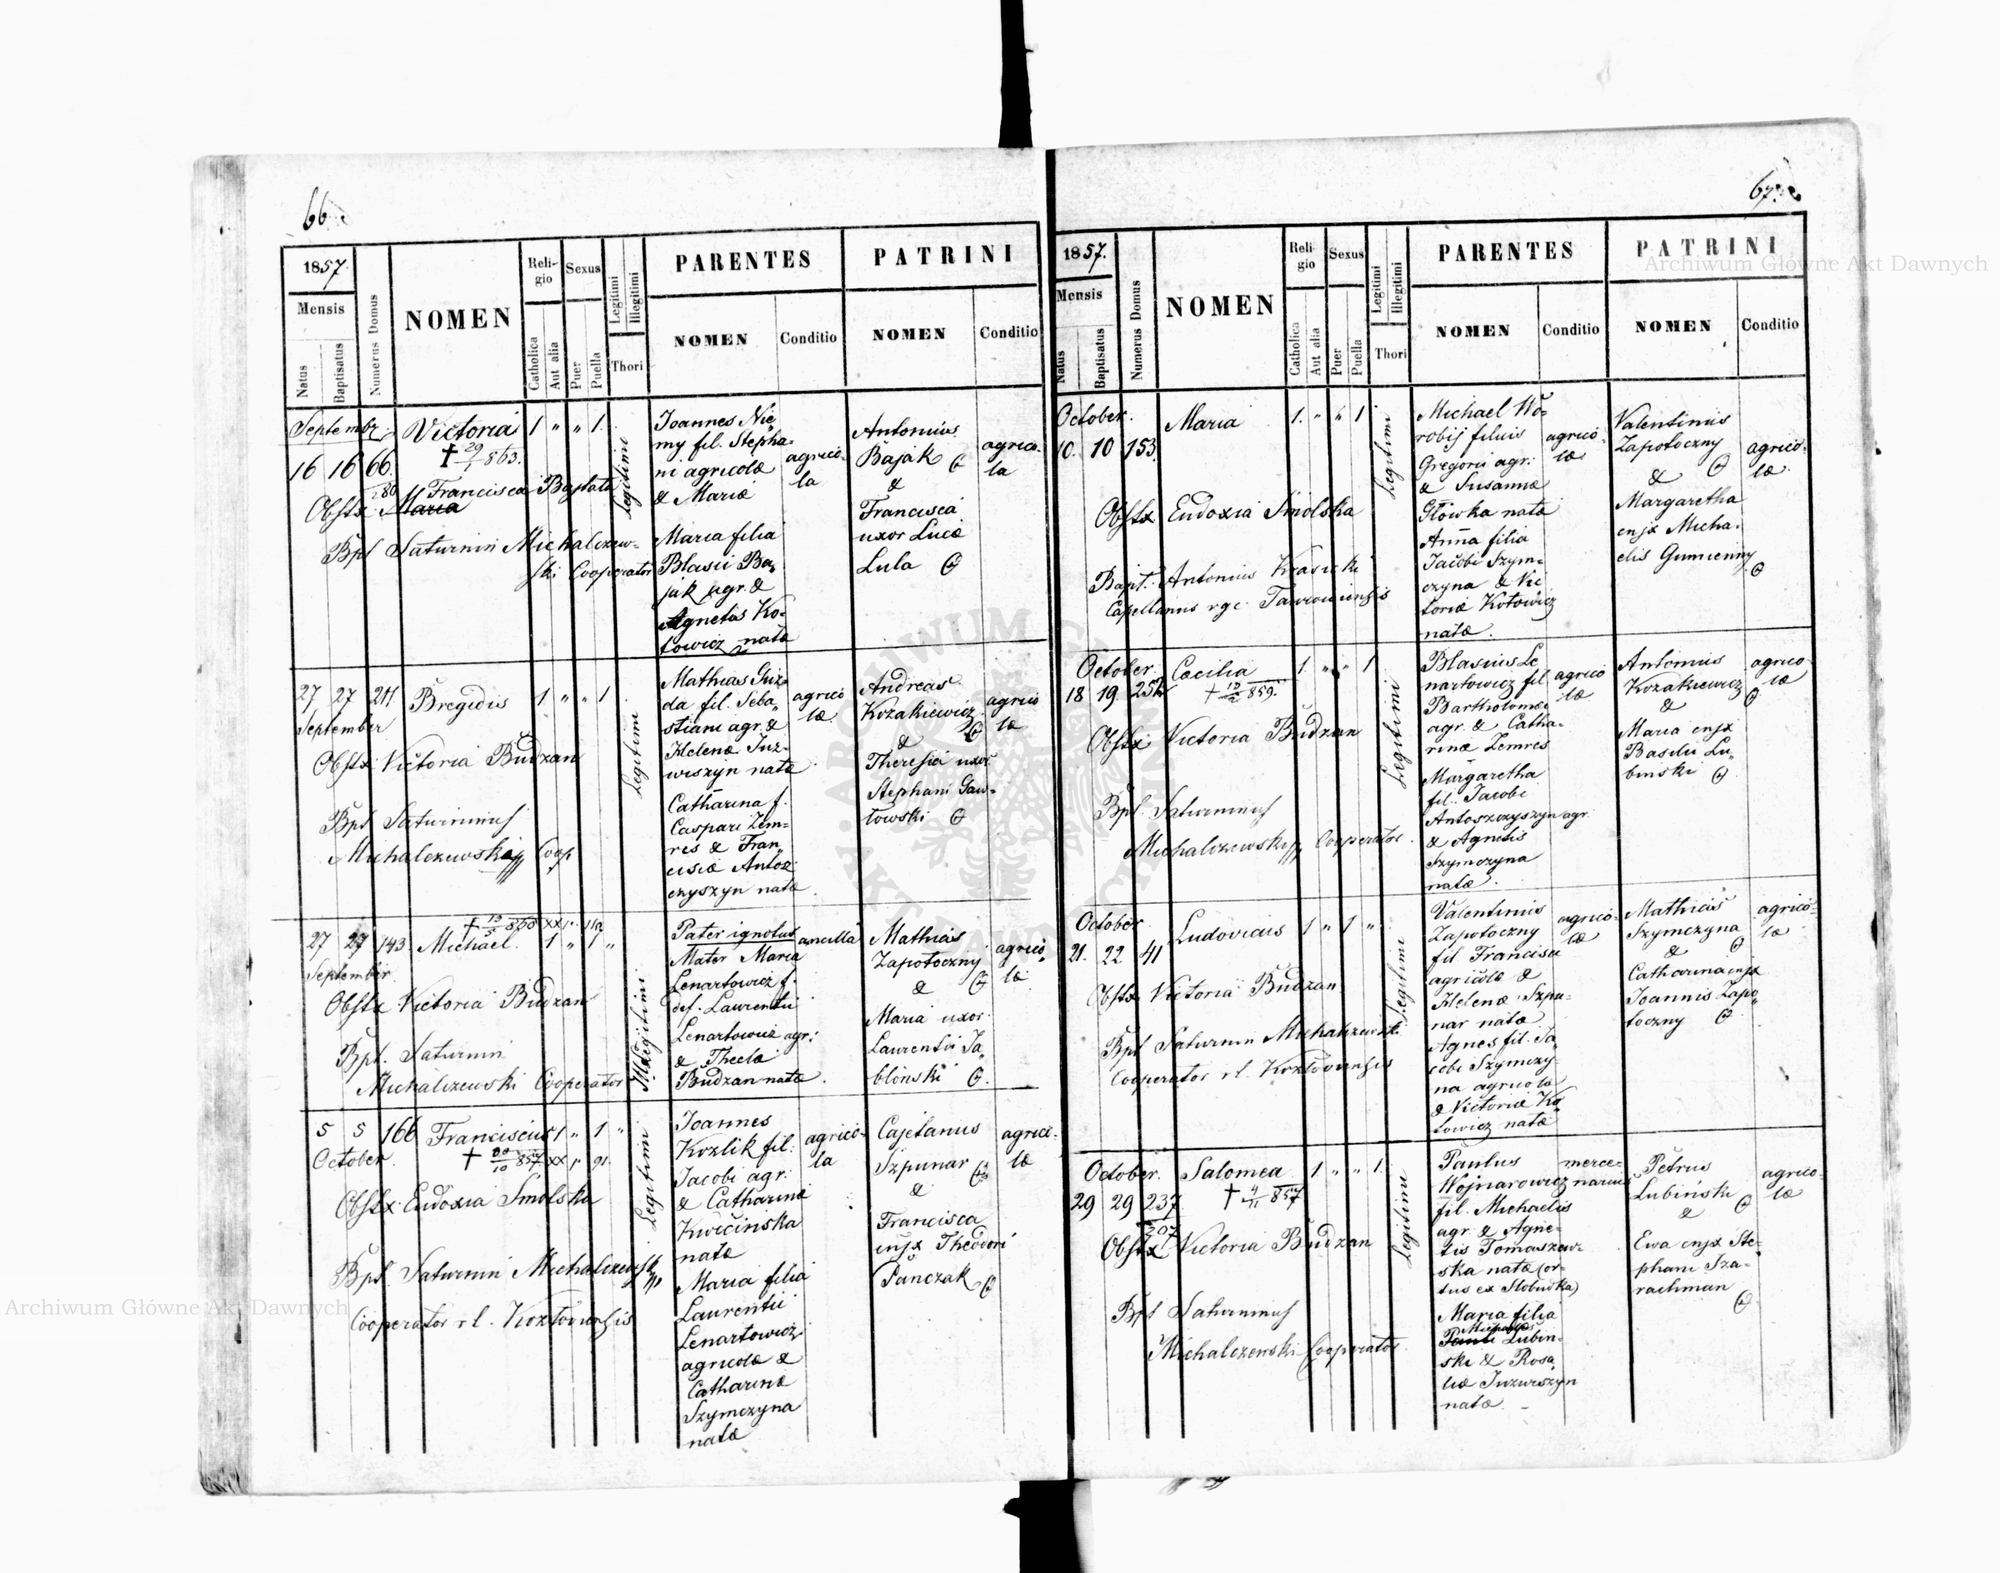 66.
1857.
Mensis
Natus
Baptisatus
Numerus Domus
NOMEN
Reli-
gio
Catholica
Aut alia
Sexus
Puer
Puella
Legitimi
Illegitimi
Thori
PARENTES
NOMEN
Conditio
PATRINI
NOMEN
Conditio
Septembr:
16 16 66.
Victoria 1 " " 1.
† 29/1 863.
Obstx Francisca Bajtala
Maria
Bpt Saturnin Michalczew-
ski Cooperator
Legitimi
Joannes Nie-
my fil. Stepha-
ni agricolæ
& Mariæ
Maria filia
Blasii Ba-
jak agr. &
Agnetis Ko-
towicz nata
agrico-
la
Antonius
Bajak
&
Francisca
uxor Lucæ
Lula
agrico-
la
27 27 211 Bregidis 1 " " 1
September
Obstx Victoria Budzan
Bpt Saturninus
Michalczewski Coop
Legitimi
Mathias Guz-
da fil. Seba-
stiani agr. &
Helenæ Juz-
wiszyn nata
Catharina f.
Caspari Zem-
res & Fran-
cisiæ Antoz-
czyszyn nata
agrico
læ
Andreas
Kozakiewicz
&
Theresia uxor
Stephani Gaw-
łowski
agrico
læ
27 27 143 Michael 1 " 1 "
September
Obstx Victoria Budzan
Bpt. Saturnin
Michalczewski Cooperator
Illegitimi
Pater ignotus
Mater Maria
Lenartowicz f.
def. Laurentii
Lenartowicz agr.
& Theclæ
Budzan nata
ancilla
Mathias
Zapotoczny
&
Maria uxor
Laurentii Ja-
błonski
agrico
læ
5 5 166 Franciscus 1 " 1 "
October
† 20/10 857
Obstx Eudoxia Smolska
Bpt Saturnin Michalczewski
Cooperator r.l. Kozłoviensis
Legitimi
Joannes
Kozlik fil.
Jacobi agr.
& Catharinæ
Kwicinska
nata
Maria filia
Laurentii
Lenartowicz
agricolæ &
Catharinæ
Szymczyna
nata
agrico-
la
Cajetanus
Szpunar
&
Francisca
cnjx Theodori
Panczak
agrico-
læ
67.
1857.
Mensis
Natus
Baptisatus
Numerus Domus
NOMEN
Reli-
gio
Catholica
Aut alia
Sexus
Puer
Puella
Legitimi
Illegitimi
Thori
PARENTES
NOMEN
Conditio
PATRINI
NOMEN
Conditio
October.
10. 10 153. Maria 1. " " 1
Obstx Eudoxia Smolska
Bapt. Antonius Krasicki
Capellanus rgc.
Legitimi
Michael Wo-
robij filius
Gregorii agr.
& Susannæ
Główka nata
Anna filia
Jacobi Szym-
czyna & Vic
toriæ Kotowicz
nata.
agrico-
læ
Valentinus
Zapotoczny
&
Margaretha
cnjx Micha-
elis Gumienny
agrico-
læ
October.
18 19 252 Cæcilia 1 " " 1
† 859.
Obstx Victoria Budzan
Bpt. Saturninus
Michalczewski Cooperator
Legitimi
Blasius Le
nartowicz fil.
Bartholomæi
agr. & Catha-
rinæ Zemres
Margaretha
fil. Jacobi
Antoszczyszyn agr.
& Agnetis
Szymczyna
nata.
agrico
læ
Antonius
Kozakiewicz
&
Maria cnjx
Basilii Lu-
binski
agrico-
læ
October
21. 22 41 Ludovicus 1 " 1 "
Obstx Victoria Budzan
Bpt Saturnin Michalczewski
Cooperator r.l. Kozłoviensis
Legitimi
Valentinus
Zapotoczny
fil Francisci
agricolæ &
Helenæ Szpu-
nar nata
Agnes fil. Ja-
cobi Szymczy-
na agricola
& Victoriæ Ko-
towicz nata
agrico-
læ
Mathias
Szymczyna
&
Catharina cnjx
Joannis Zapo-
toczny
agrico-
læ
October.
29 29 237. Salomea 1 " " 1.
† 4/11 857
207
Obstx Victoria Budzan
Bpt Saturninus
Michalczewski Cooperator
Legitimi
Paulus
Wojnarowicz
fil. Michaelis
agr. & Agne-
tis Tomaszew-
ska nata (or-
tus ex Słobudka)
Maria filia
Michaelis
Pauli Lubin-
ski & Rosa-
liæ Juzwiszyn
nata.
merce-
narius
Petrus
Lubiński
&
Ewa cnjx Ste-
phani Sza-
rachman
agrico-
læ
Archiwum Główne Akt Dawnych
Archiwum Główne Akt Dawnych
ARCHIWUM GŁÓWNE AKT DAWNYCH